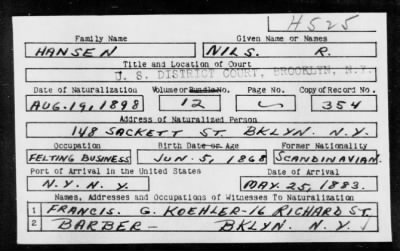 H525
Family Name Given Name or Names
HANSEN NILS. R.
Title and Location of Court
U. S. DISTRICT COURT, BROOKLYN, N.Y.
Date of Naturalization Volume or Bundle No. Page No. Copy of Record No.
AUG. 19, 1898 12 354
Address of Naturalized Person
148 SACKETT ST. BKLYN. N.Y.
Occupation Birth Date or Age Former Nationality
FELTING BUSINESS JUN. 5, 1868 SCANDINAVIAN.
Port of Arrival in the United States Date of Arrival
N.Y. N.Y. MAY. 25, 1883.
Names, Addresses and Occupations of Witnesses To Naturalization
1 FRANCIS. G. KOEHLER-16 RICHARD ST.
2 BARBER- BKLYN. N.Y.